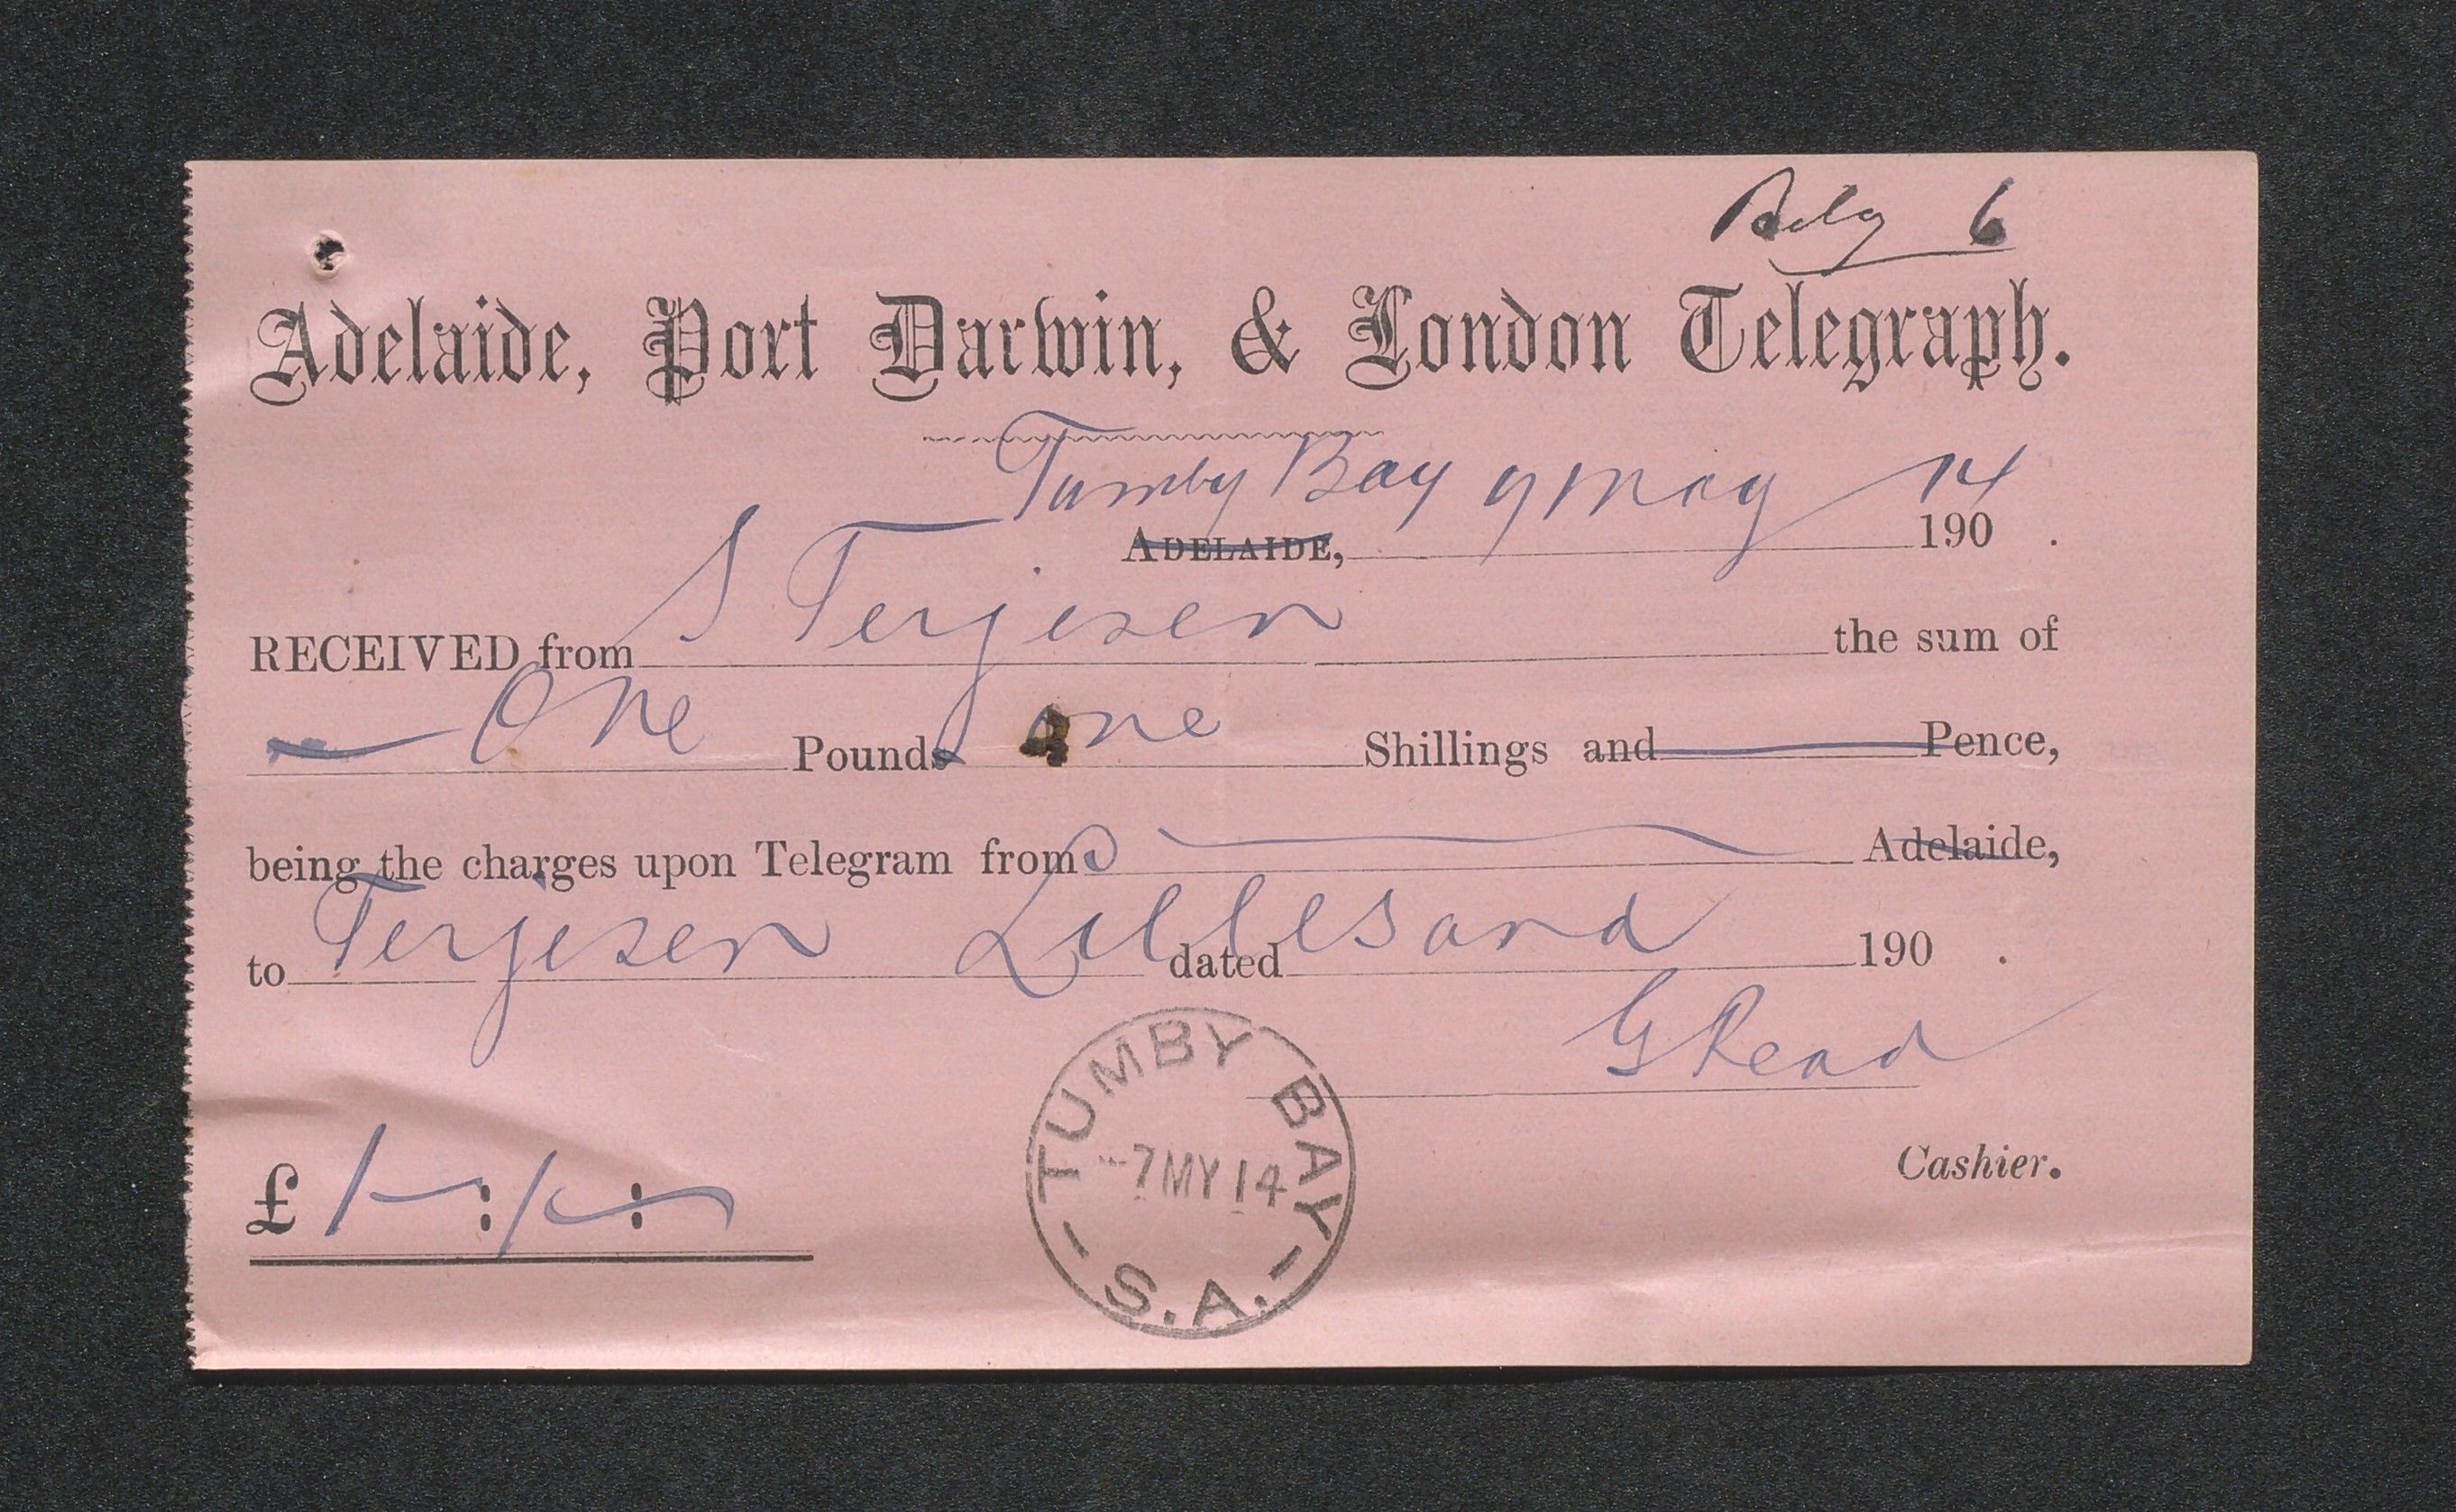 Bilag 6
Adelaide, Port Darwin, & London Telegraph.
Tumby Bay 7 May 14
ADELAIDE, 190 .
RECEIVED from S Terjesen the sum of
One Pounds one Shillings and Pence,
being the charges upon Telegram from Adelaide,
to Terjesen Lillesand dated 190 .
G Read
Cashier.
£ 1 : 1 :
TUMBY BAY
7 MY 14
S.A.